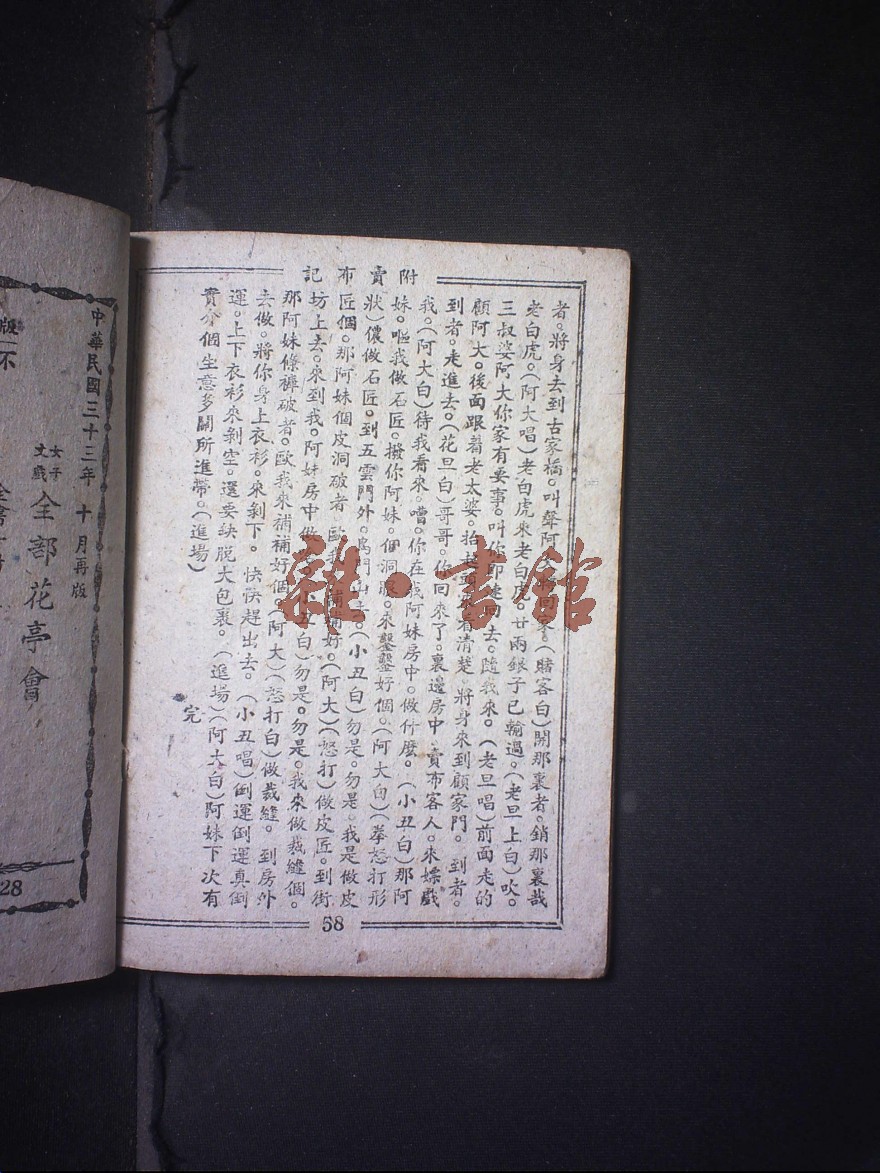 附賣布記
者。將身去到古家橋。叫聲阿大回家。(賭客白)開那裏者。銷那裏哉
老白虎。(阿大唱)老白虎來老白虎。廿兩銀子已輸過。(老旦上白)吹。
三叔婆阿大你家有要事。叫你即速回去。隨我來。(老旦唱)前面走的
顧阿大。後面跟着老太婆。抬起頭來看清楚。將身來到顧家門。到者。
到者。走進去。(花旦白)哥哥。你回來了。裏邊房中賣布客人。來嫖戲
我。(阿大白)待我看來。嘈。你在我阿妹房中。做什麼。(小丑白)那阿
妹。嘔我做石匠。撥你阿妹。個洞眼。來鑿鑿好個。(阿大白)(拳怒打形
狀)儂做石匠。到五雲門外。鳥門山去。(小丑白)勿是。勿是。我是做皮
匠個。那阿妹個皮洞破者。歐我補補好。(阿大)(怒打)做皮匠。到街
坊上去。來到我。阿妹房中做(小丑白)勿是。勿是。我來做裁縫個。
那阿妹條褲破者。歐我來補補好個。(阿大)(怒打白)做裁縫。到房外
去做。將你身上衣衫。來剝下。快快趕出去。(小丑唱)倒運倒運真倒
運。上下衣衫來剝空。還要缺脫大包裹。(進場)(阿大白)阿妹下次有
賣介個生意多關所進帶。(進場)
完
58
雜·書館
中華民國三十三年十月再版
女子文戲全部花亭會
版
不
28